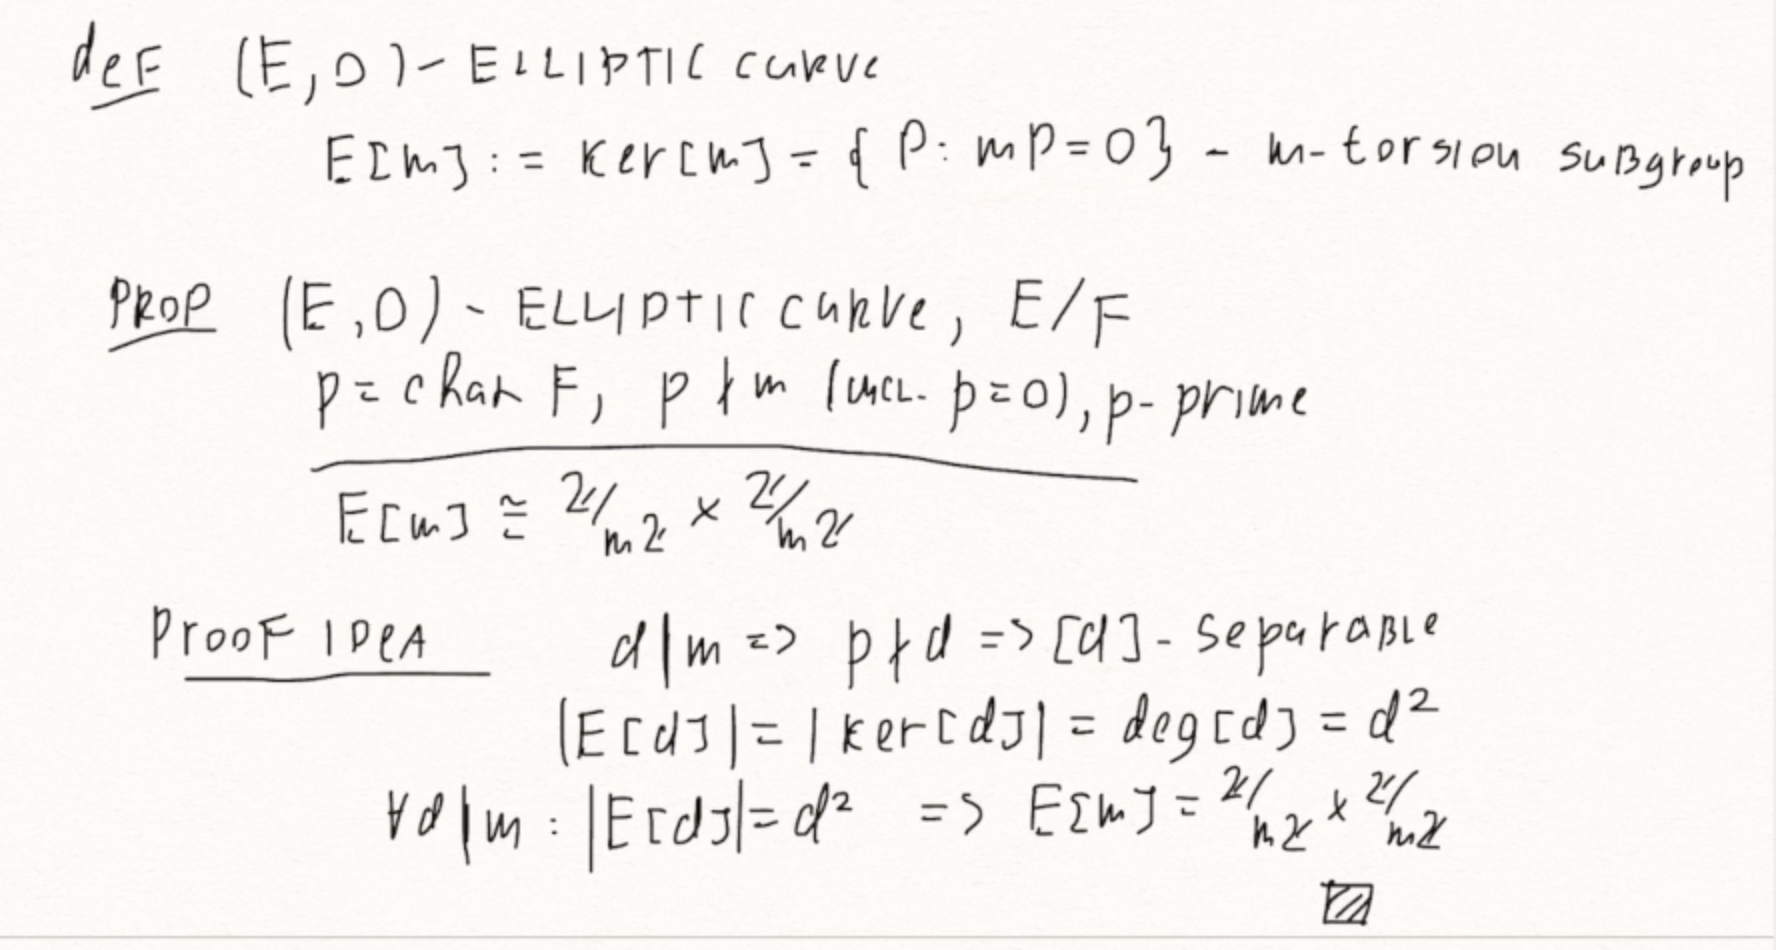 def (E, O) - ELLIPTIC curve
E[m] := ker[m] = { P : mP = 0 } - m-torsion subgroup
PROP (E, O) - ELLIPTIC curve, E/F
p = char F, p ∤ m (incl. p = 0), p - prime
E[m] ≅ ℤ/mℤ × ℤ/mℤ
Proof idea d | m => p ∤ d => [d] - separable
|E[d]| = |ker[d]| = deg[d] = d²
∀d | m : |E[d]| = d² => E[m] = ℤ/mℤ × ℤ/mℤ